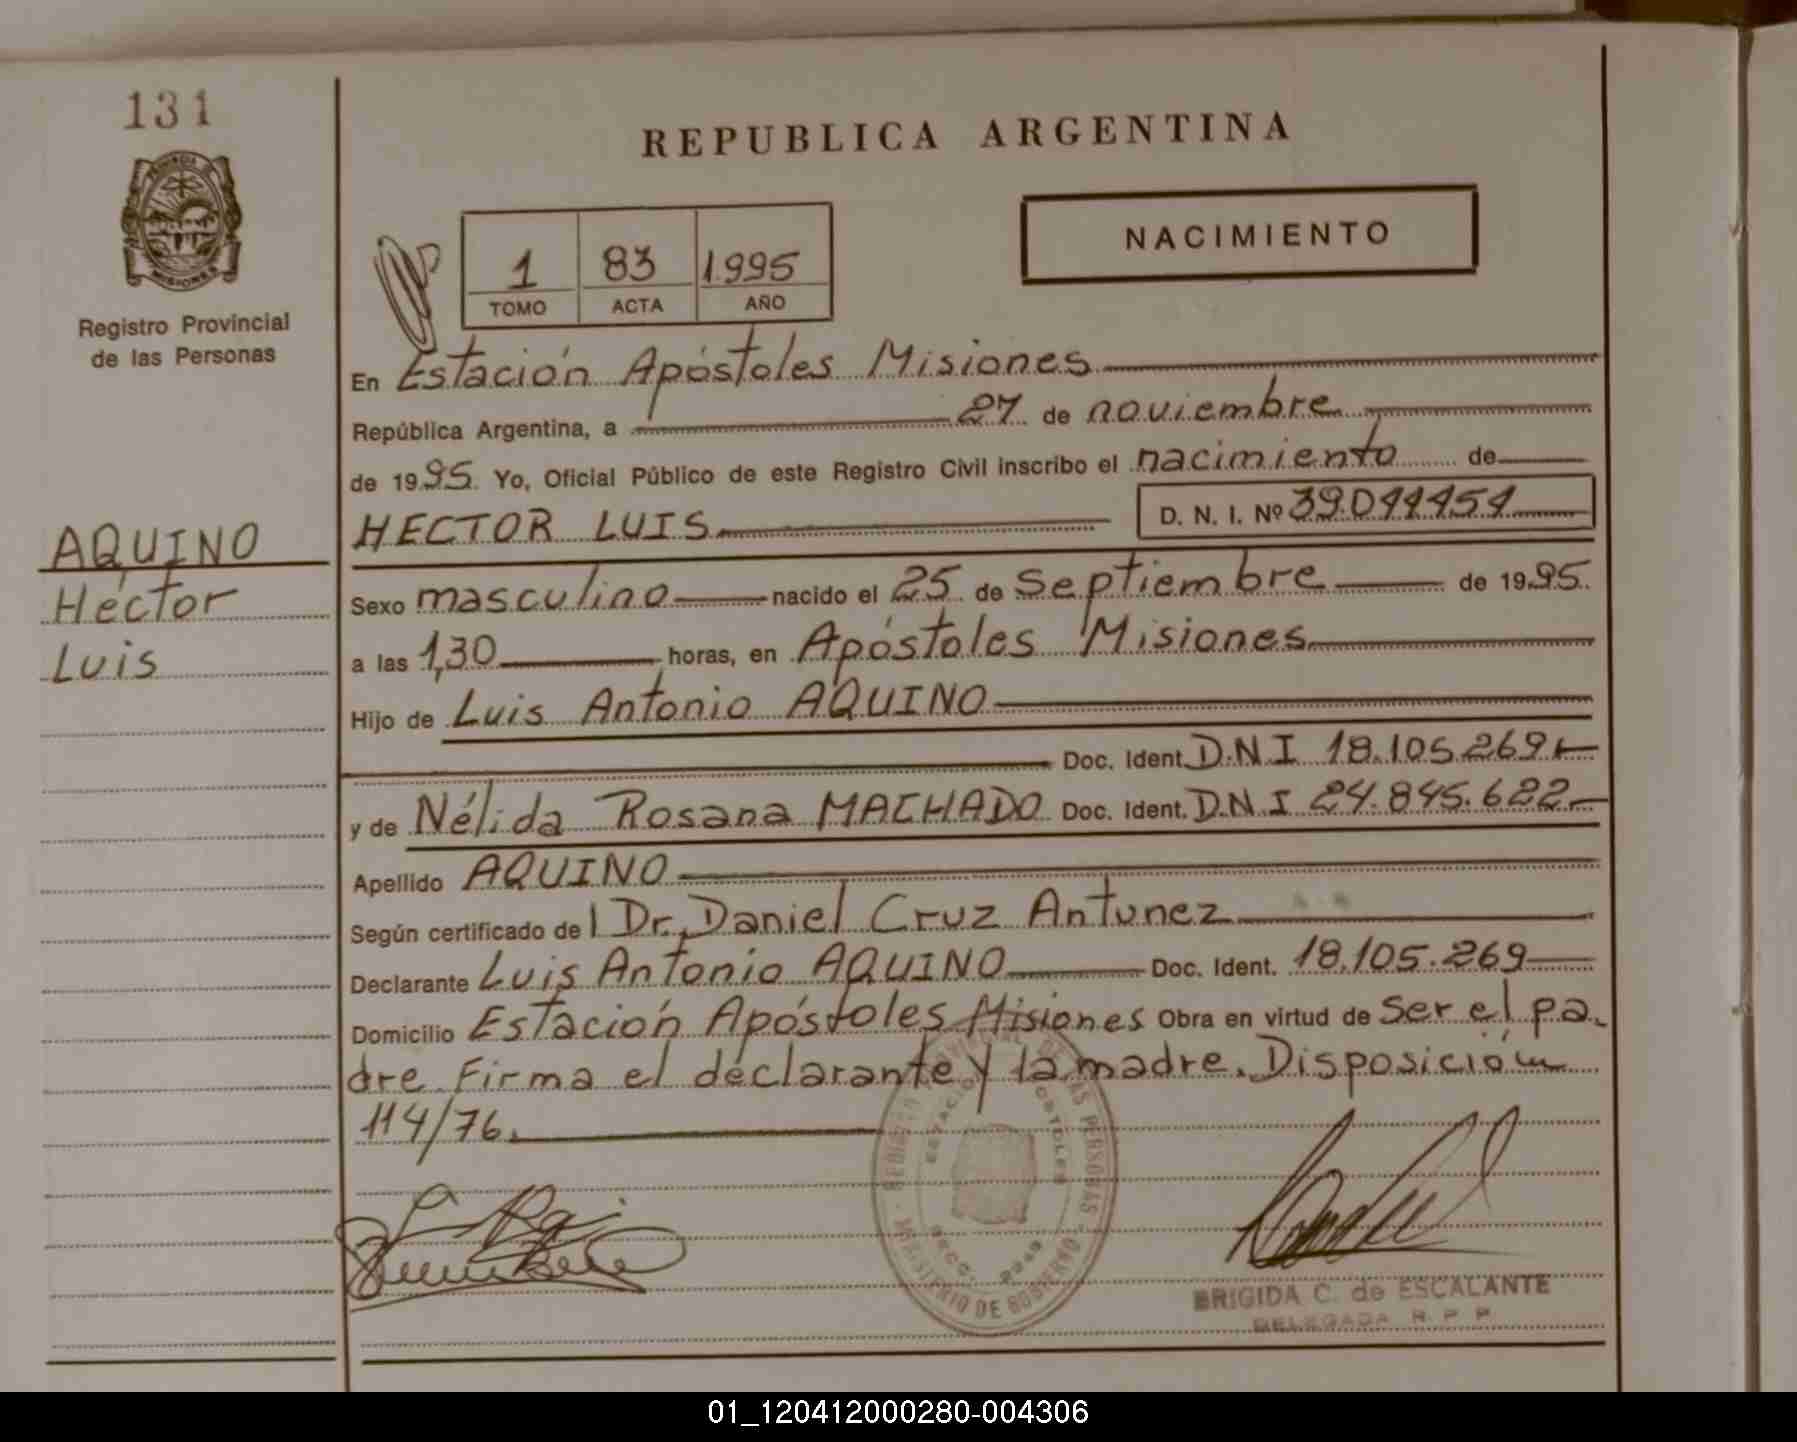 131
REPUBLICA ARGENTINA
PROVINCIA DE
MISIONES
Registro Provincial
de las Personas
NACIMIENTO
1 83 1995
TOMO ACTA AÑO
En Estación Apóstoles Misiones
República Argentina, a 27 de noviembre
de 1995. Yo, Oficial Público de este Registro Civil inscribo el nacimiento de
HECTOR LUIS D. N. I. Nº 39.044454
AQUINO
Héctor
Luis
Sexo masculino nacido el 25 de Septiembre de 1995.
a las 1,30 horas, en Apóstoles Misiones
Hijo de Luis Antonio AQUINO
Doc. Ident. D.N.I 18.105.269
y de Nélida Rosana MACHADO Doc. Ident. D.N.I 24.845.622
Apellido AQUINO
Según certificado del Dr. Daniel Cruz Antunez
Declarante Luis Antonio AQUINO Doc. Ident. 18.105.269
Domicilio Estación Apóstoles Misiones Obra en virtud de ser el pa-
dre. Firma el declarante y la madre. Disposición
114/76.
REGISTRO PROVINCIAL DE LAS PERSONAS
ESTACION APOSTOLES
MINISTERIO DE GOBIERNO
BRIGIDA C. de ESCALANTE
DELEGADA R. P. P.
01_120412000280-004306